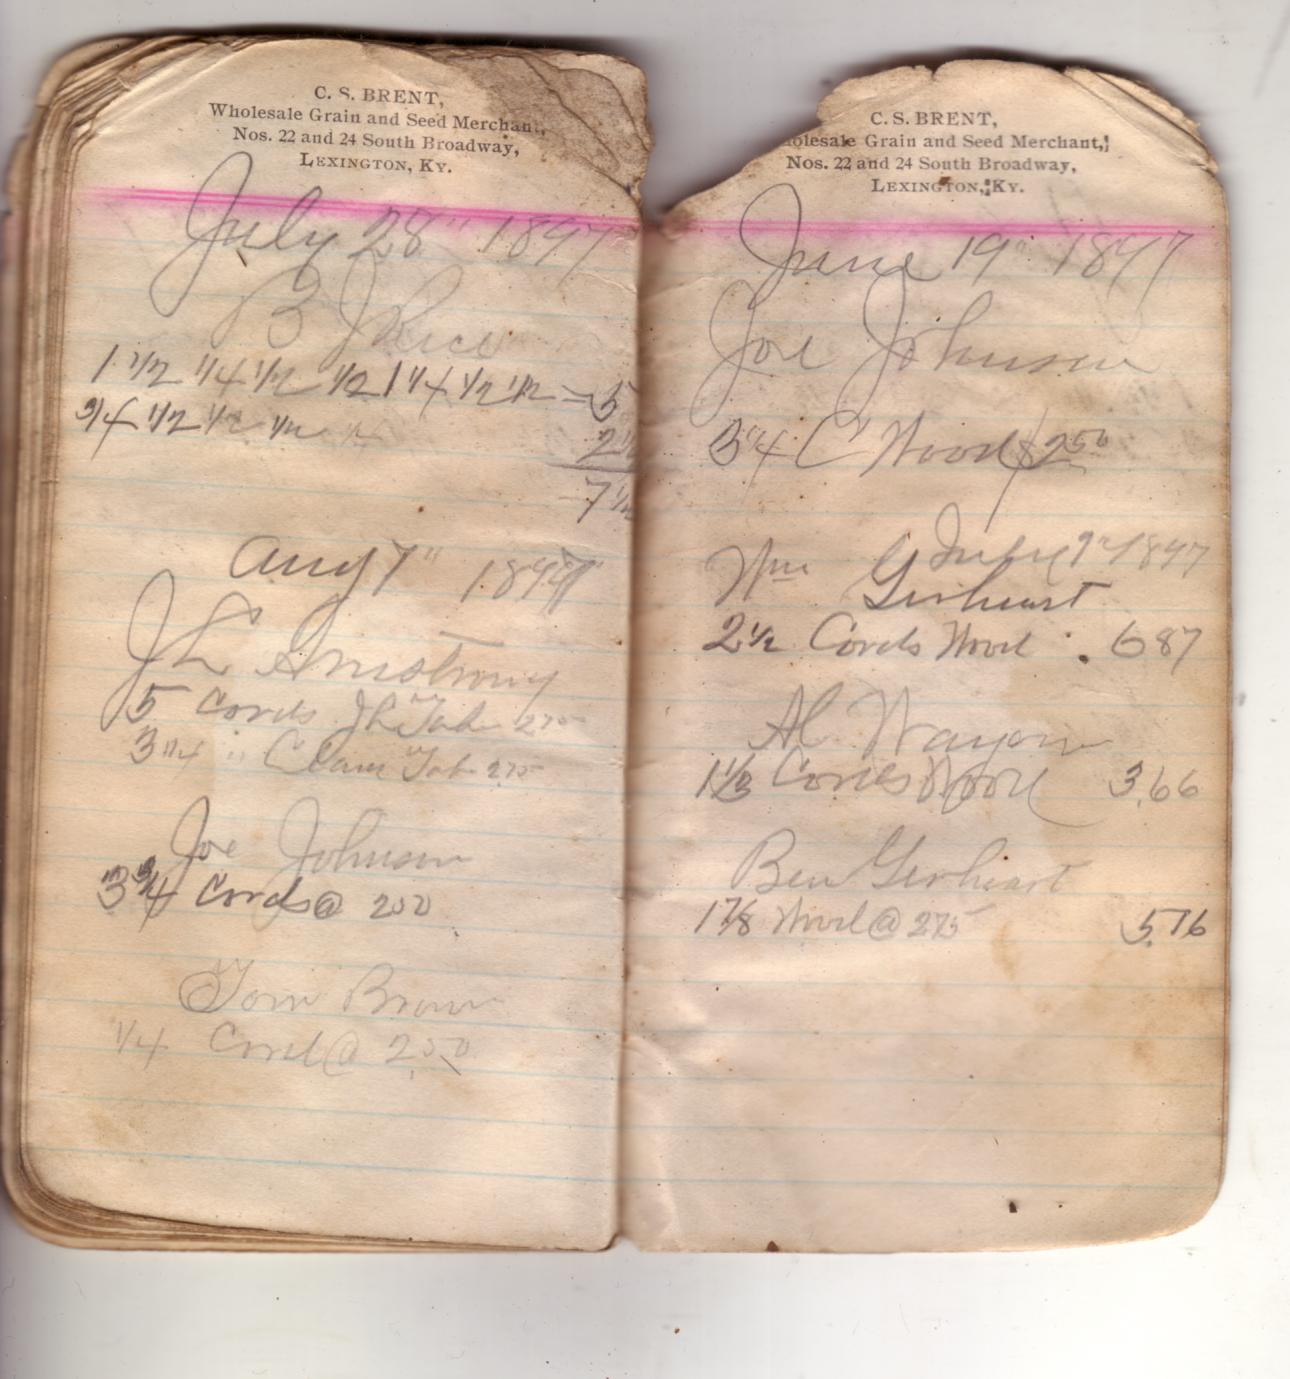 C. S. BRENT,
Wholesale Grain and Seed Merchant,
Nos. 22 and 24 South Broadway,
LEXINGTON, KY.
July 28" 1897
B J Rice
1 1/2 1/4 1/2 1/2 1 1/4 1/2 1/2 = 5
3/4 1/2 1/2 1/2 1/4
2 1/2
7 1/2
Aug 7" 1897
J L Armstrong
5 Cords J L Tab 275
3 1/4 " Clam Tab 275
Joe Johnson
3 3/4 Cords @ 250
Tom Brown
1/4 Cord @ 2.50
C. S. BRENT,
olesale Grain and Seed Merchant,
Nos. 22 and 24 South Broadway,
LEXINGTON, KY.
June 19" 1897
Joe Johnson
3/4 C Wood $2 50
July 9" 1897
Wm Gerheart
2 1/2 Cords Wood . 6 87
Al Wayon
1 1/3 Cords Wood 3.66
Ben Gerheart
1 7/8 Wood @ 275 5.16